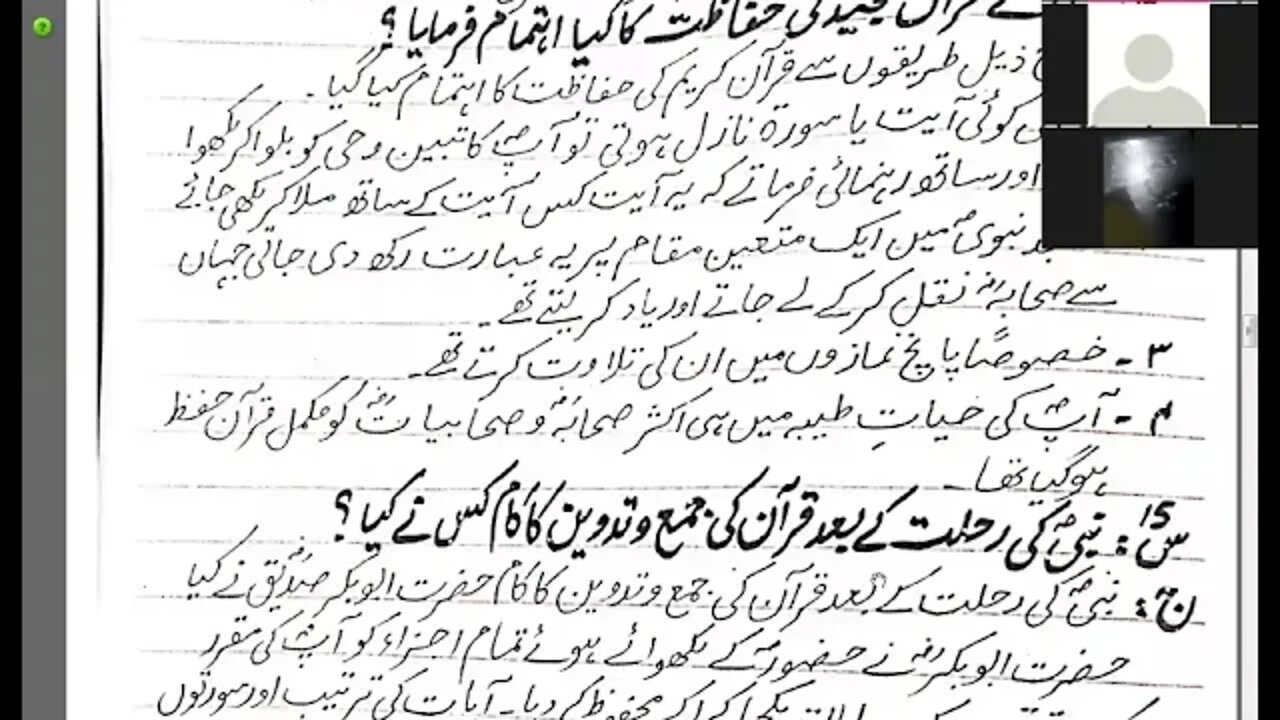 قرآن مجید کی حفاظت کا کیا اہتمام فرمایا؟
ذیل طریقوں سے قرآن کریم کی حفاظت کا اہتمام کیا گیا۔
کوئی آیت یا سورۃ نازل ہوتی تو آپؐ کاتبین وحی کو بلوا کر لکھوا
اور ساتھ رہنمائی فرماتے کہ یہ آیت کس آیت کے ساتھ ملا کر لکھی جائے
نبویؐ میں ایک متعین مقام پر یہ عبارت رکھ دی جاتی جہاں
سے صحابہؓ نقل کر کے لے جاتے اور یاد کر لیتے تھے۔
۳۔ خصوصًا پانچ نمازوں میں ان کی تلاوت کرتے تھے۔
۴۔ آپؐ کی حیاتِ طیبہ میں ہی اکثر صحابہؓ و صحابیاتؓ کو مکمل قرآن حفظ
ہو گیا تھا۔
س 15: نبیؐ کی رحلت کے بعد قرآن کی جمع و تدوین کا کام کس نے کیا؟
ج: نبیؐ کی رحلت کے بعد قرآن کی جمع و تدوین کا کام حضرت ابوبکر صدیقؓ نے کیا
حضرت ابوبکرؓ نے حضورؐ کے لکھوائے ہوئے تمام اجزاء کو آپؐ کی مقرر
یکجا کرا کر محفوظ کر دیا۔ آیات کی ترتیب اور سورتوں